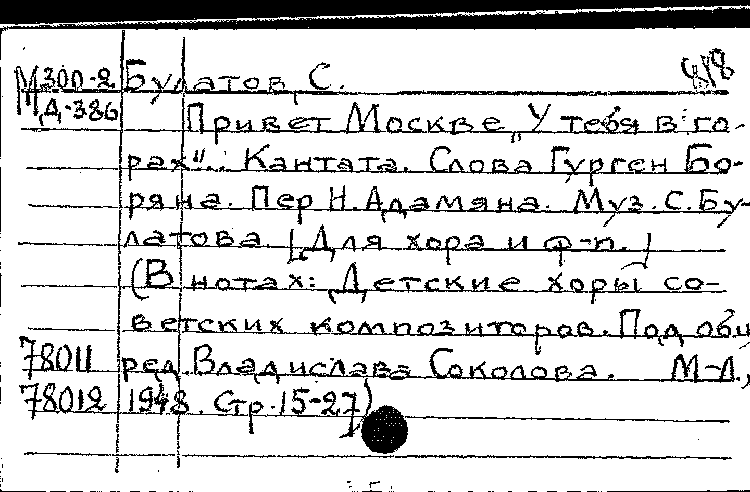 М 300-2 Булатов, С.
Д-386 Привет Москве „У тебя в го-
рах"... Кантата. Слова Гурген Бо-
ряна. Пер Н. Адамяна. Муз. С. Бу-
латова. [Для хора и ф-п.]
(В нотах: Детские хоры со-
ветских композиторов. Под общ
78011 ред. Владислава Соколова. М-Л.,
78012 1948. Стр. 15-27)